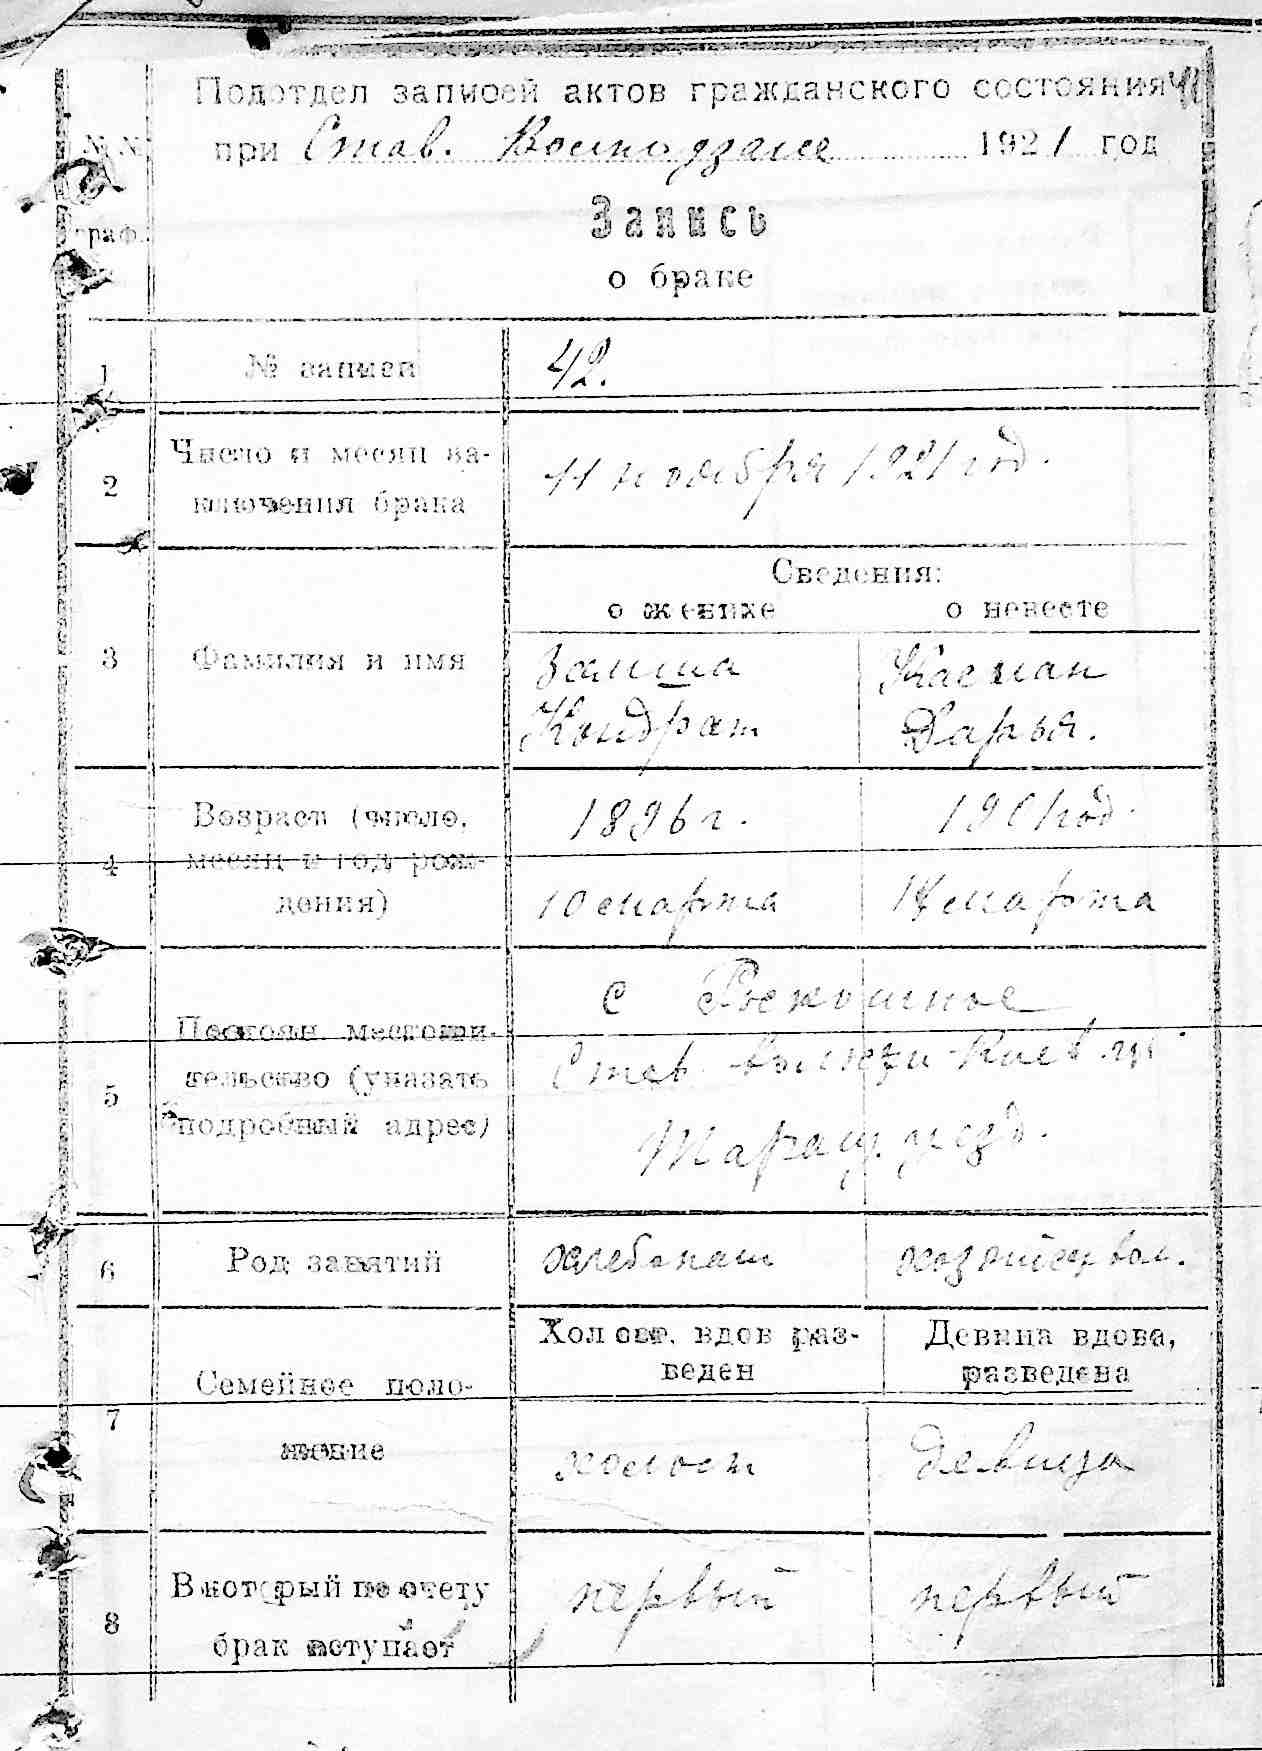 Подотдел записей актов гражданского состояния 41
при Став. 1921 год
№ №
граф.
Запись
о браке
1 № записи 42.
2 Число и месяц за-
ключения брака
11 ноября 1921 год.
Сведения:
о женихе о невесте
3 Фамилия и имя
Заиша Касман
Кондрат Дарья.
4 Возраст (число,
месяц и год рож-
дения)
1896 г. 1901 год.
10 марта 14 марта
5 Постоян. местожи-
тельство (указать
подробный адрес)
с Роскошное
Став. волости Киев. губ.
Таращ. уезд.
6 Род занятий хлебопаш хозяйством.
Холост, вдов раз-
веден
Девица вдова,
разведена
7 Семейное поло-
жение
холост девица
8 В который по счету
брак вступает
первый первый